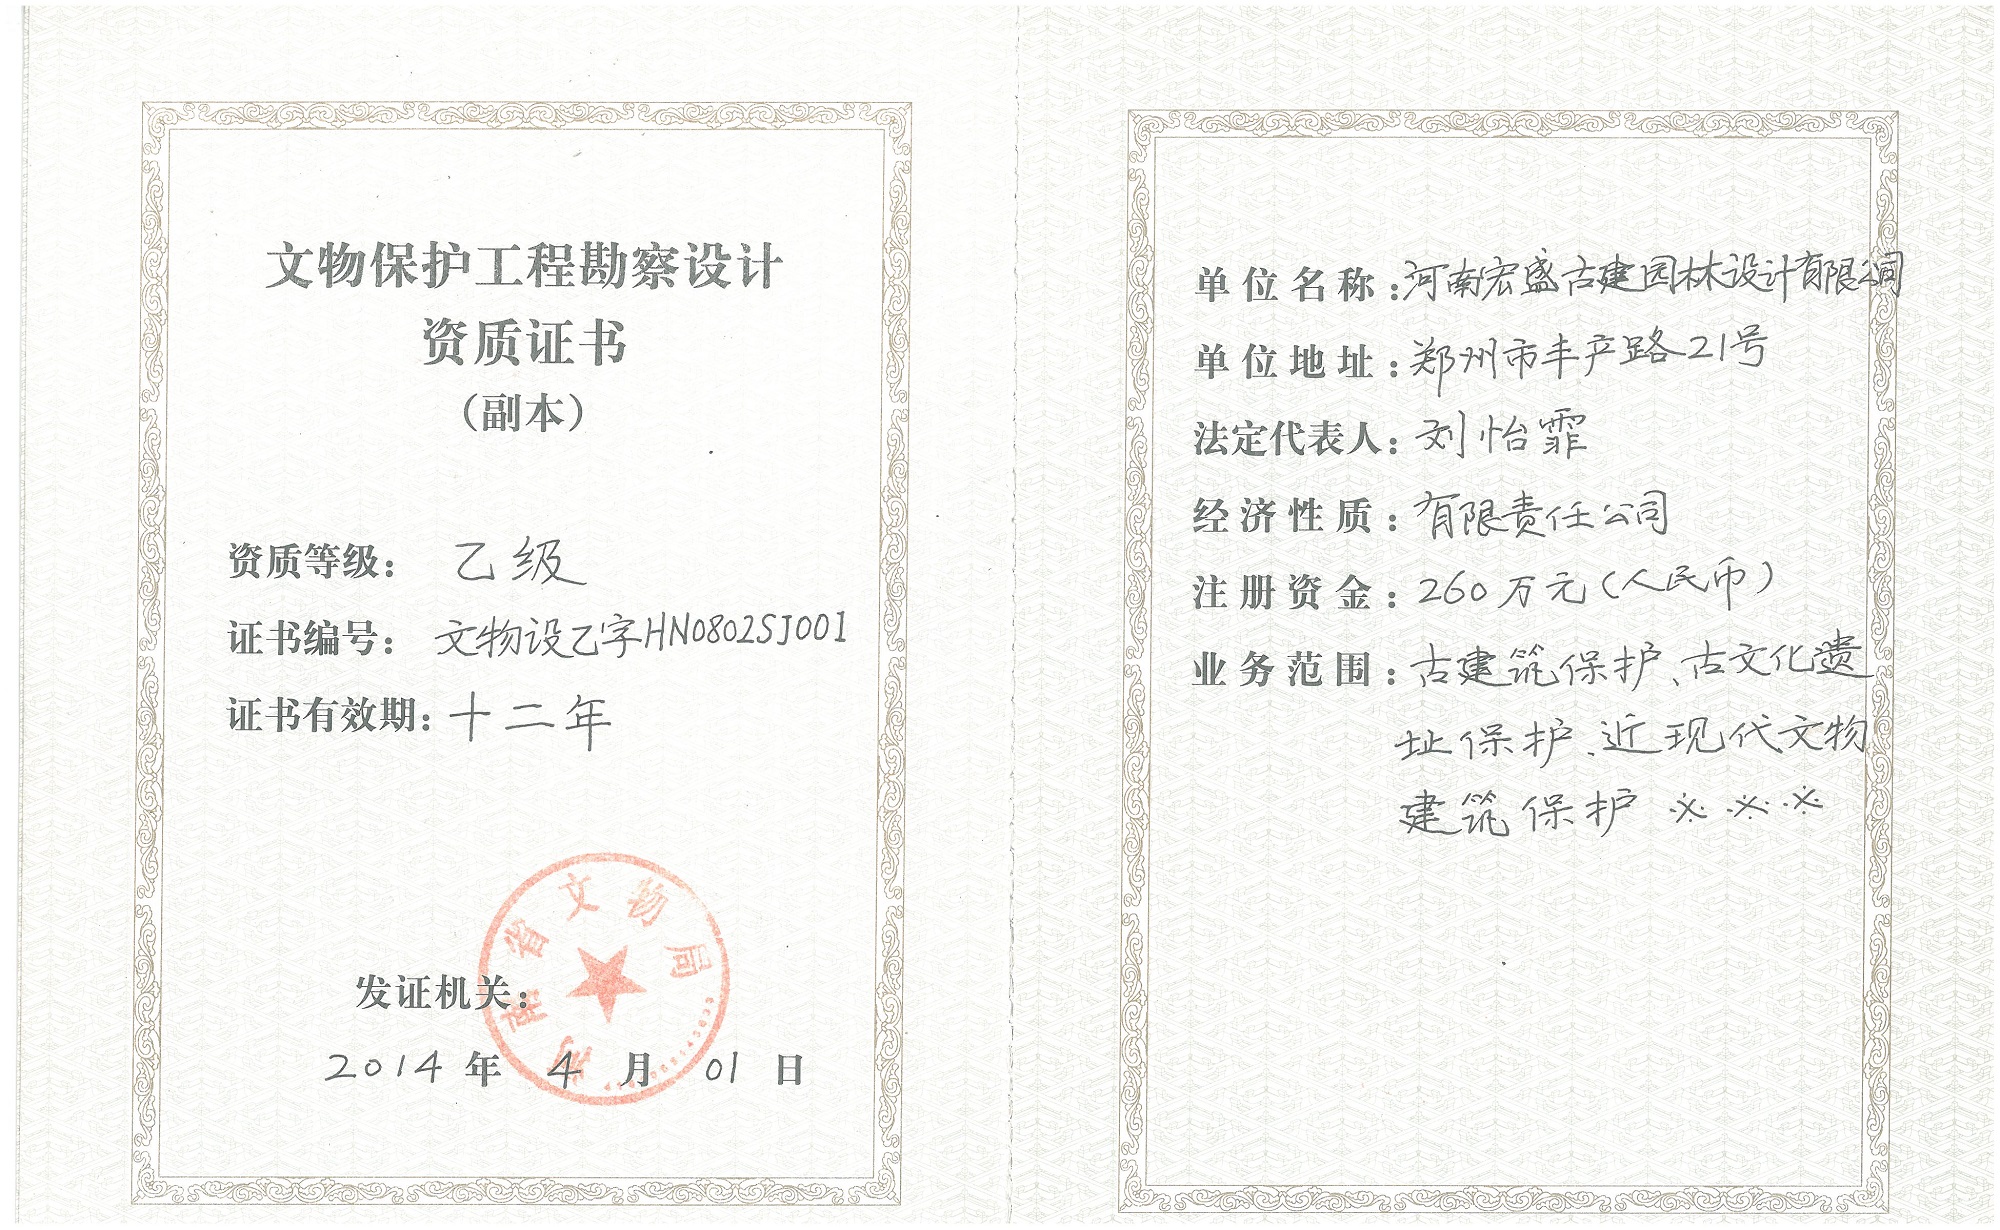 文物保护工程勘察设计
资质证书
(副本)
资质等级: 乙级
证书编号: 文物设乙字HN0802SJ001
证书有效期: 十二年
发证机关:
河南省文物局
2014 年 4 月 01 日
单位名称: 河南宏盛古建园林设计有限公司
单位地址: 郑州市丰产路21号
法定代表人: 刘怡霏
经济性质: 有限责任公司
注册资金: 260万元(人民币)
业务范围: 古建筑保护、古文化遗
址保护、近现代文物
建筑保护 ※ ※ ※